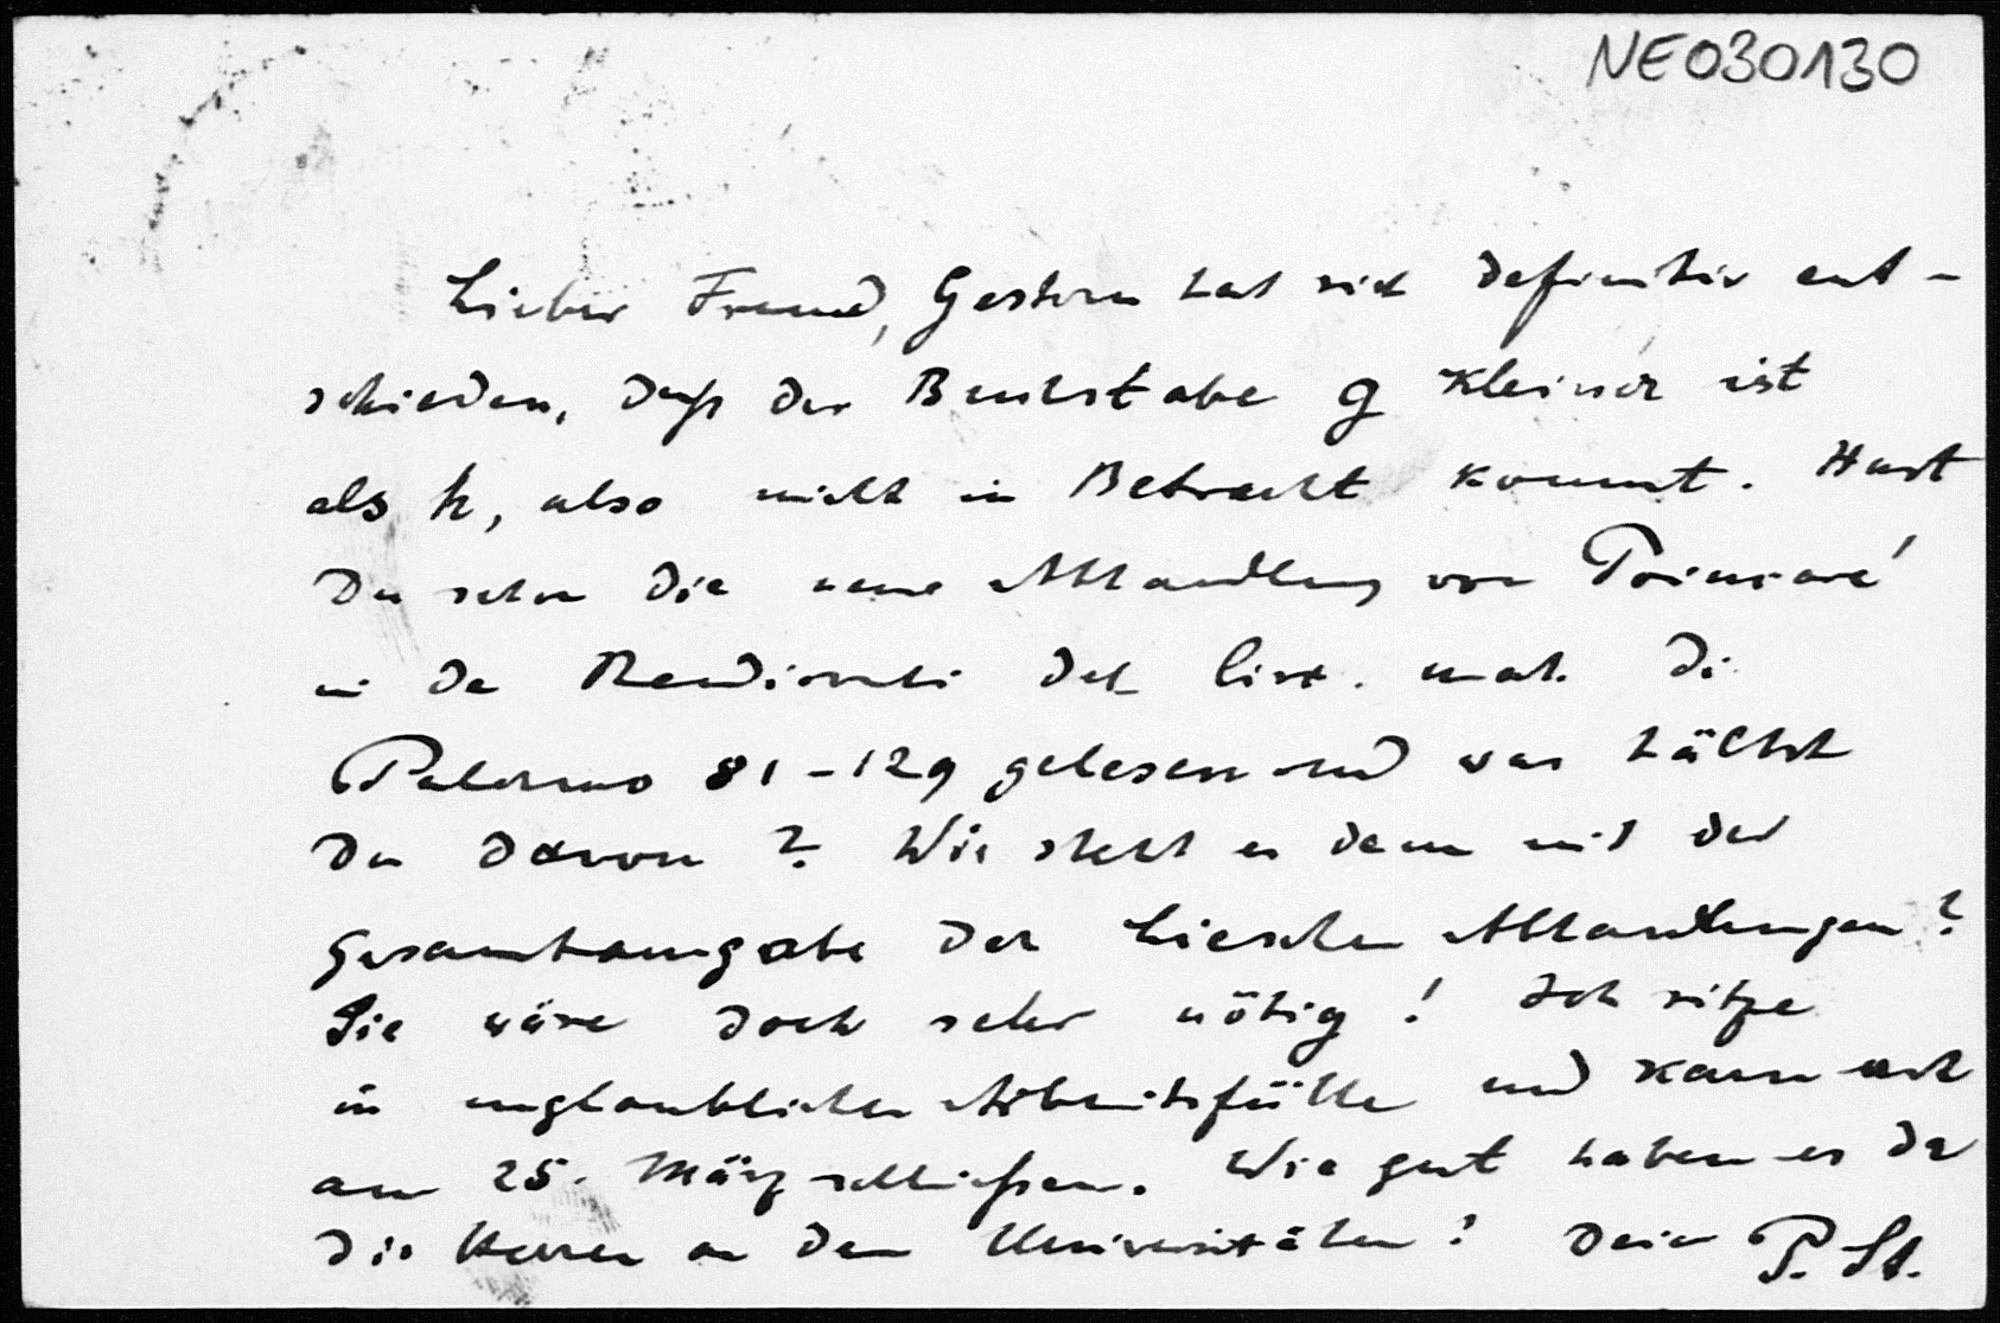 NE030130
Lieber Freund, Gestern hat sich definitiv ent-
schieden, daß der Buchstabe g kleiner ist
als h, also nicht in Betracht kommt. Hast
Du schon die neue Abhandlung von Poincaré
in den Rendiconti del circ. mat. di
Palermo 81-129 gelesen und was hältst
Du davon? Wie steht es denn mit der
Gesamtausgabe der Lieschen Abhandlungen?
Sie wäre doch sehr nötig! Ich sitze
in unglaublicher Arbeitsfülle und kann erst
am 25. März schließen. Wie gut haben es da
die Herren an den Universitäten! Dein P. St.